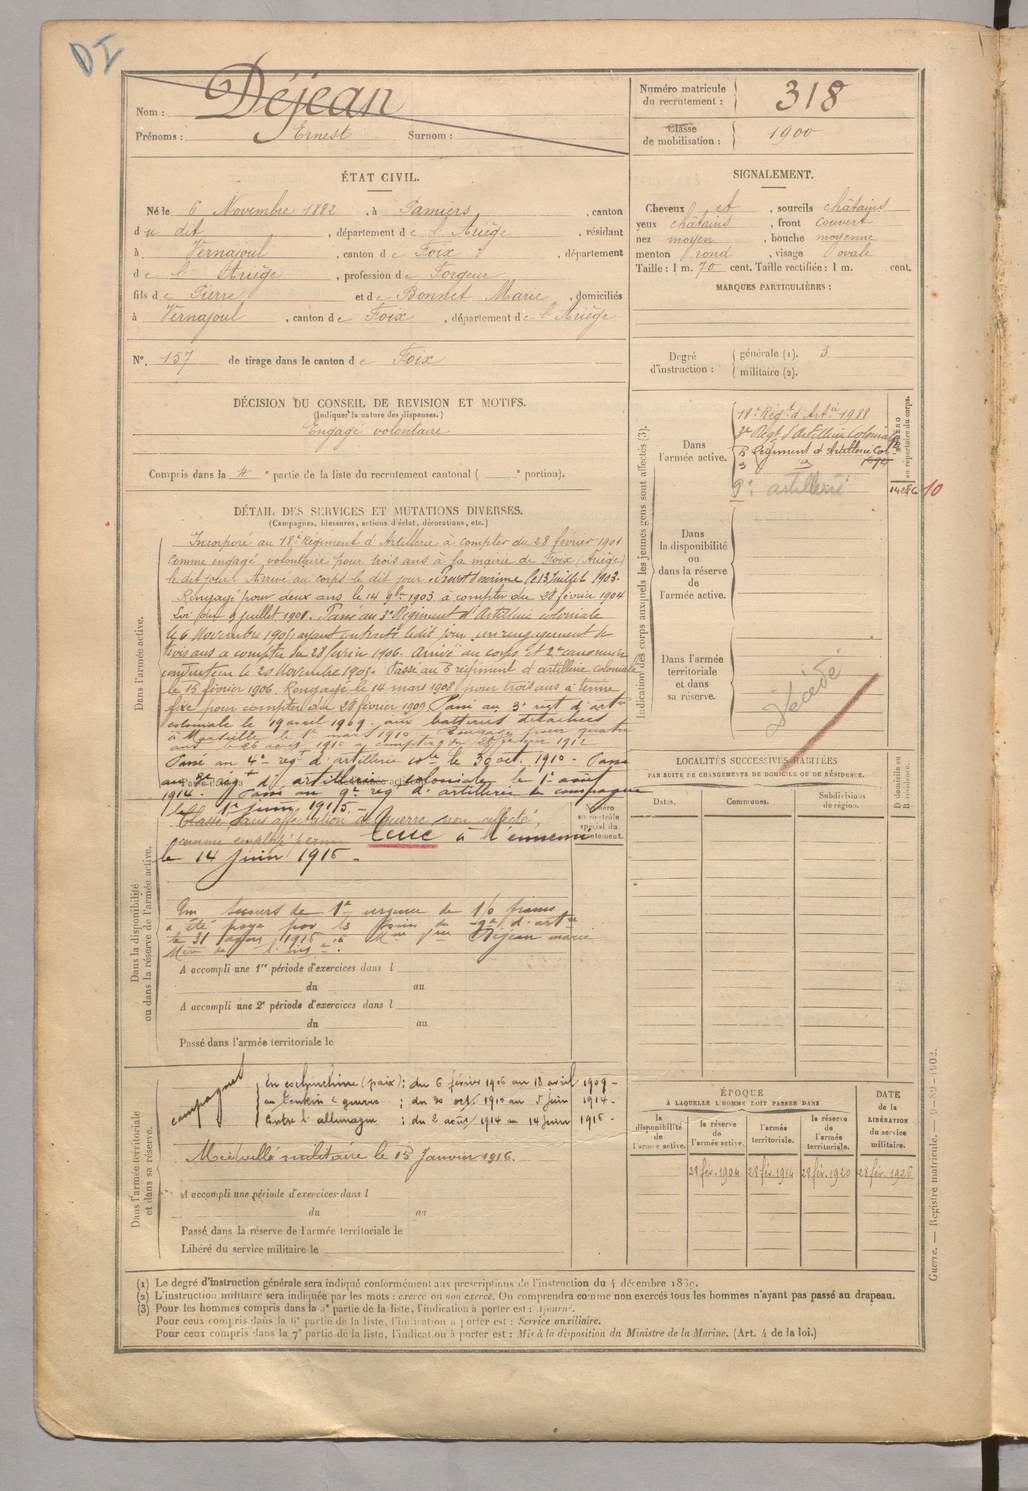 DI
Nom : Déjean
Prénoms : Ernest Surnom :
Numéro matricule du recrutement : 318
Classe de mobilisation : 1900
ÉTAT CIVIL.
Né le 6 Novembre 1882, à Pamiers, canton
du dit, département de l'Ariège, résidant
à Vernajoul, canton de Foix, département
de l'Ariège, profession de Forgeur
fils de Pierre et de Bonnet Marie, domiciliés
à Vernajoul, canton de Foix, département de l'Ariège
N° 157 de tirage dans le canton de Foix
SIGNALEMENT.
Cheveux et, sourcils châtains
yeux châtains, front couvert
nez moyen, bouche moyenne
menton rond, visage ovale
Taille : 1 m. 70 cent. Taille rectifiée : 1 m. cent.
MARQUES PARTICULIÈRES :
Degré d'instruction : générale (1). 3
militaire (2).
DÉCISION DU CONSEIL DE REVISION ET MOTIFS.
(Indiquer la nature des dispenses.)
Engagé volontaire
Compris dans la 4e partie de la liste du recrutement cantonal ( e portion).
DÉTAIL DES SERVICES ET MUTATIONS DIVERSES.
(Campagnes, blessures, actions d'éclat, décorations, etc.)
Dans l'armée active.
Incorporé au 18e Régiment d'Artillerie à compter du 28 février 1901
comme engagé volontaire pour trois ans à la mairie de Foix (Ariège)
le dit jour. Arrivé au corps le dit jour. le 13 juillet 1903.
Rengagé pour deux ans le 14 9bre 1903 à compter du 28 février 1904
Passé au 3e Régiment d'Artillerie coloniale
le 6 Novembre 1905 ayant contracté le dit jour un rengagement de
trois ans à compter du 28 février 1906. Arrivé au corps et 2e canonnier
conducteur le 20 Novembre 1905. Passé au 5 régiment d'artillerie coloniale
le 15 février 1906. Rengagé le 14 mars 1908 pour trois ans à terme
fixe pour compter du 28 février 1909. Passé au 3e régt d'artie
coloniale le 19 avril 1909. aux batteries détachées
à Marseille le 1er mars 1910. Rengagé pour quatre
ans le 26 août 1910 à compter du 28 février 1912
Passé au 4e régt d'artillerie cole le 30 oct. 1910 - Passé
au régt d'artillerie coloniale le 1er août
1914. Passé au 9e rég d'artillerie de campagne
le 1er juin 1915.
Classé sans affectation
Tué à l'ennemi
le 14 Juin 1915.
Numéro au contrôle spécial du recrutement.
Dans la disponibilité ou dans la réserve de l'armée active.
Un secours de 1re urgence de 150 francs
a été payé par les soins du 9e d'artie
le 31 1915 à Mme Déjean marie
A accompli une 1re période d'exercices dans l
du au
A accompli une 2e période d'exercices dans l
du au
Passé dans l'armée territoriale le
Dans l'armée territoriale et dans sa réserve.
campagnes
En cochinchine (paix) : du 6 février 1906 au 18 avril 1909 -
au tonkin guerre : du 30 oct. 1910 au 5 juin 1914 -
Contre l'allemagne : du 2 août 1914 au 14 juin 1915 -
Médaille militaire le 15 Janvier 1916.
A accompli une période d'exercices dans l
du au
Passé dans la réserve de l'armée territoriale le
Libéré du service militaire le
Indication des corps auxquels les jeunes gens sont affectés (3).
Dans l'armée active.
18e Régt d'Artie 1988
3e Régt d'Artillerie Coloniale
5 Régiment d'Artillerie Col
3
9e artillerie
NUMÉRO au répertoire du corps.
10
Dans la disponibilité ou dans la réserve de l'armée active.
Dans l'armée territoriale et dans sa réserve.
Décédé
LOCALITÉS SUCCESSIVES HABITÉES
PAR SUITE DE CHANGEMENTS DE DOMICILE OU DE RÉSIDENCE.
Dates. Communes. Subdivisions de région. D domicile ou R résidence.
ÉPOQUE
À LAQUELLE L'HOMME DOIT PASSER DANS
la disponibilité de l'armée active.
la réserve de l'armée active.
l'armée territoriale.
la réserve de l'armée territoriale.
DATE de la LIBÉRATION du service militaire.
28 fév. 1904 28 fév. 1914 28 fév. 1920 28 fév. 1926
(1) Le degré d'instruction générale sera indiqué conformément aux prescriptions de l'instruction du 4 décembre 1889.
(2) L'instruction militaire sera indiquée par les mots : exercé ou non exercé. On comprendra comme non exercés tous les hommes n'ayant pas passé au drapeau.
(3) Pour les hommes compris dans la 5e partie de la liste, l'indication à porter est : Ajourné.
Pour ceux compris dans la 6e partie de la liste, l'indication à porter est : Service auxiliaire.
Pour ceux compris dans la 7e partie de la liste, l'indication à porter est : Mis à la disposition du Ministre de la Marine. (Art. 4 de la loi.)
Guerre. — Registre matricule. — 9-89-1902.